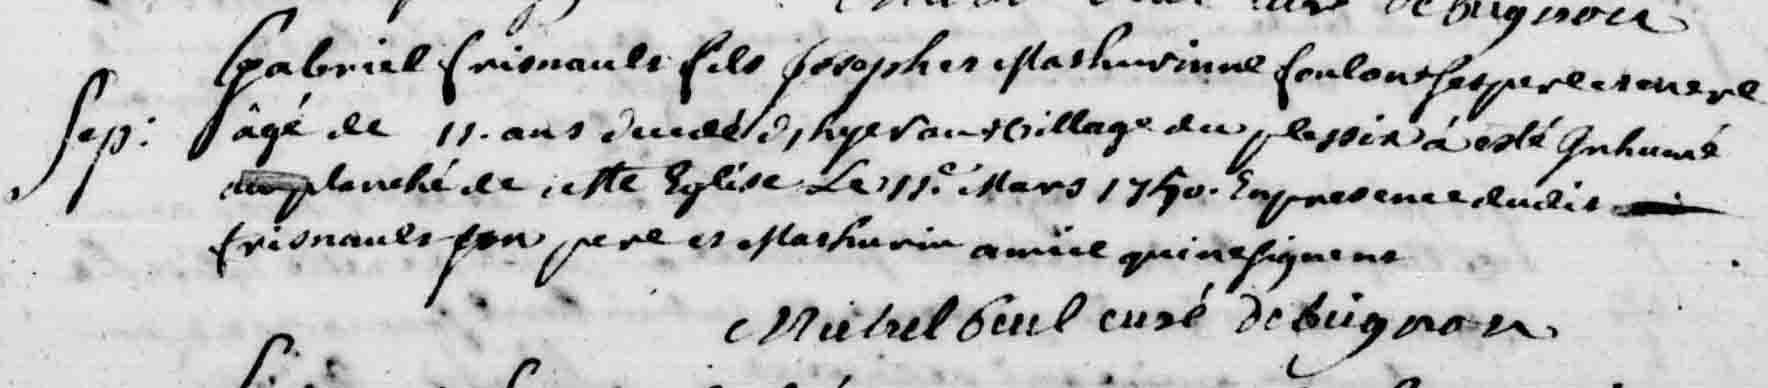 curé de bugnon
Gabriel Crisnault fils Joseph et Mathurinne Coulon ses pere et mere
Sep: âgé de 11. ans decedé d'hyer au Village du plessix á esté Inhumé
planché de cette Eglise Le 11e Mars 1750. En presence dudit
Crisnault son pere et Mathurin amice qui ne signent
Michel curé de bugnon